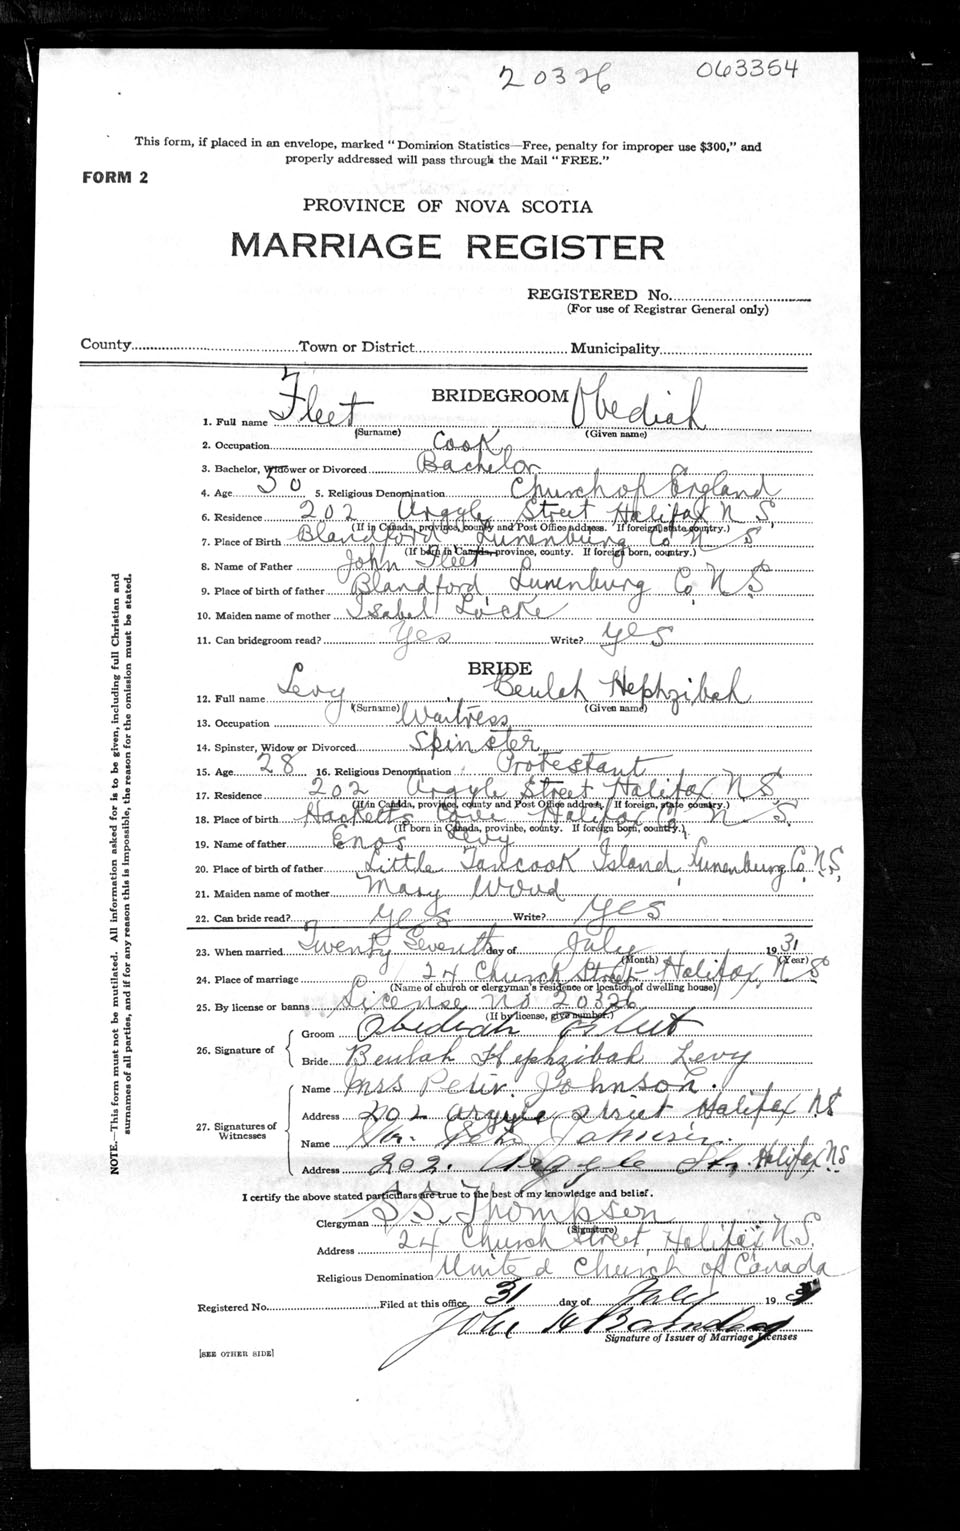 20326 063354
This form, if placed in an envelope, marked "Dominion Statistics—Free, penalty for improper use $300," and
properly addressed will pass through the Mail "FREE."
FORM 2
PROVINCE OF NOVA SCOTIA
MARRIAGE REGISTER
REGISTERED No.
(For use of Registrar General only)
County Town or District Municipality
BRIDEGROOM
1. Full name Fleet Obediah
(Surname) (Given name)
2. Occupation Cook
3. Bachelor, Widower or Divorced Bachelor
4. Age 30 5. Religious Denomination Church of England
6. Residence 202 Argyle Street Halifax N S
(If in Canada, province, county and Post Office address. If foreign, state country.)
7. Place of Birth Blandford Lunenburg Co N S
(If born in Canada, province, county. If foreign born, country.)
8. Name of Father John Fleet
9. Place of birth of father Blandford Lunenburg Co N S
10. Maiden name of mother Isabel Locke
11. Can bridegroom read? Yes Write? yes
BRIDE
12. Full name Levy Beulah Hephzibah
(Surname) (Given name)
13. Occupation Waitress
14. Spinster, Widow or Divorced Spinster
15. Age 28 16. Religious Denomination Protestant
17. Residence 202 Argyle Street Halifax N S
(If in Canada, province, county and Post Office address. If foreign, state country.)
18. Place of birth Hacketts Cove Halifax Co N S
(If born in Canada, province, county. If foreign born, country.)
19. Name of father Enos Levy
20. Place of birth of father Little Tancook Island Lunenburg Co. N.S.
21. Maiden name of mother Mary Wood
22. Can bride read? yes Write? yes
23. When married Twenty Seventh day of July 1931
(Month) (Year)
24. Place of marriage 24 Church Street Halifax N S
(Name of church or clergyman's residence or location of dwelling house)
25. By license or banns License no 20326
(If by license, give number.)
26. Signature of Groom Obediah Fleet
Bride Beulah Hephzibah Levy
27. Signatures of Witnesses
Name Mrs Johnson.
Address 202 Argyle street Halifax NS
Name Johnson
Address 202. Argyle St. Halifax NS
I certify the above stated particulars are true to the best of my knowledge and belief.
Clergyman S S Thompson
(Signature)
Address 24 Church Street, Halifax N.S.
Religious Denomination United Church of Canada
Registered No. Filed at this office 31 day of July 193
John
Signature of Issuer of Marriage Licenses
[SEE OTHER SIDE]
NOTE.—This form must not be mutilated. All information asked for is to be given, including full Christian and
surnames of all parties, and if for any reason this is impossible, the reason for the omission must be stated.